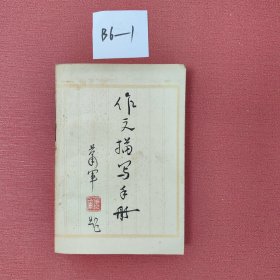 B6-1
作文描写手册
萧军题